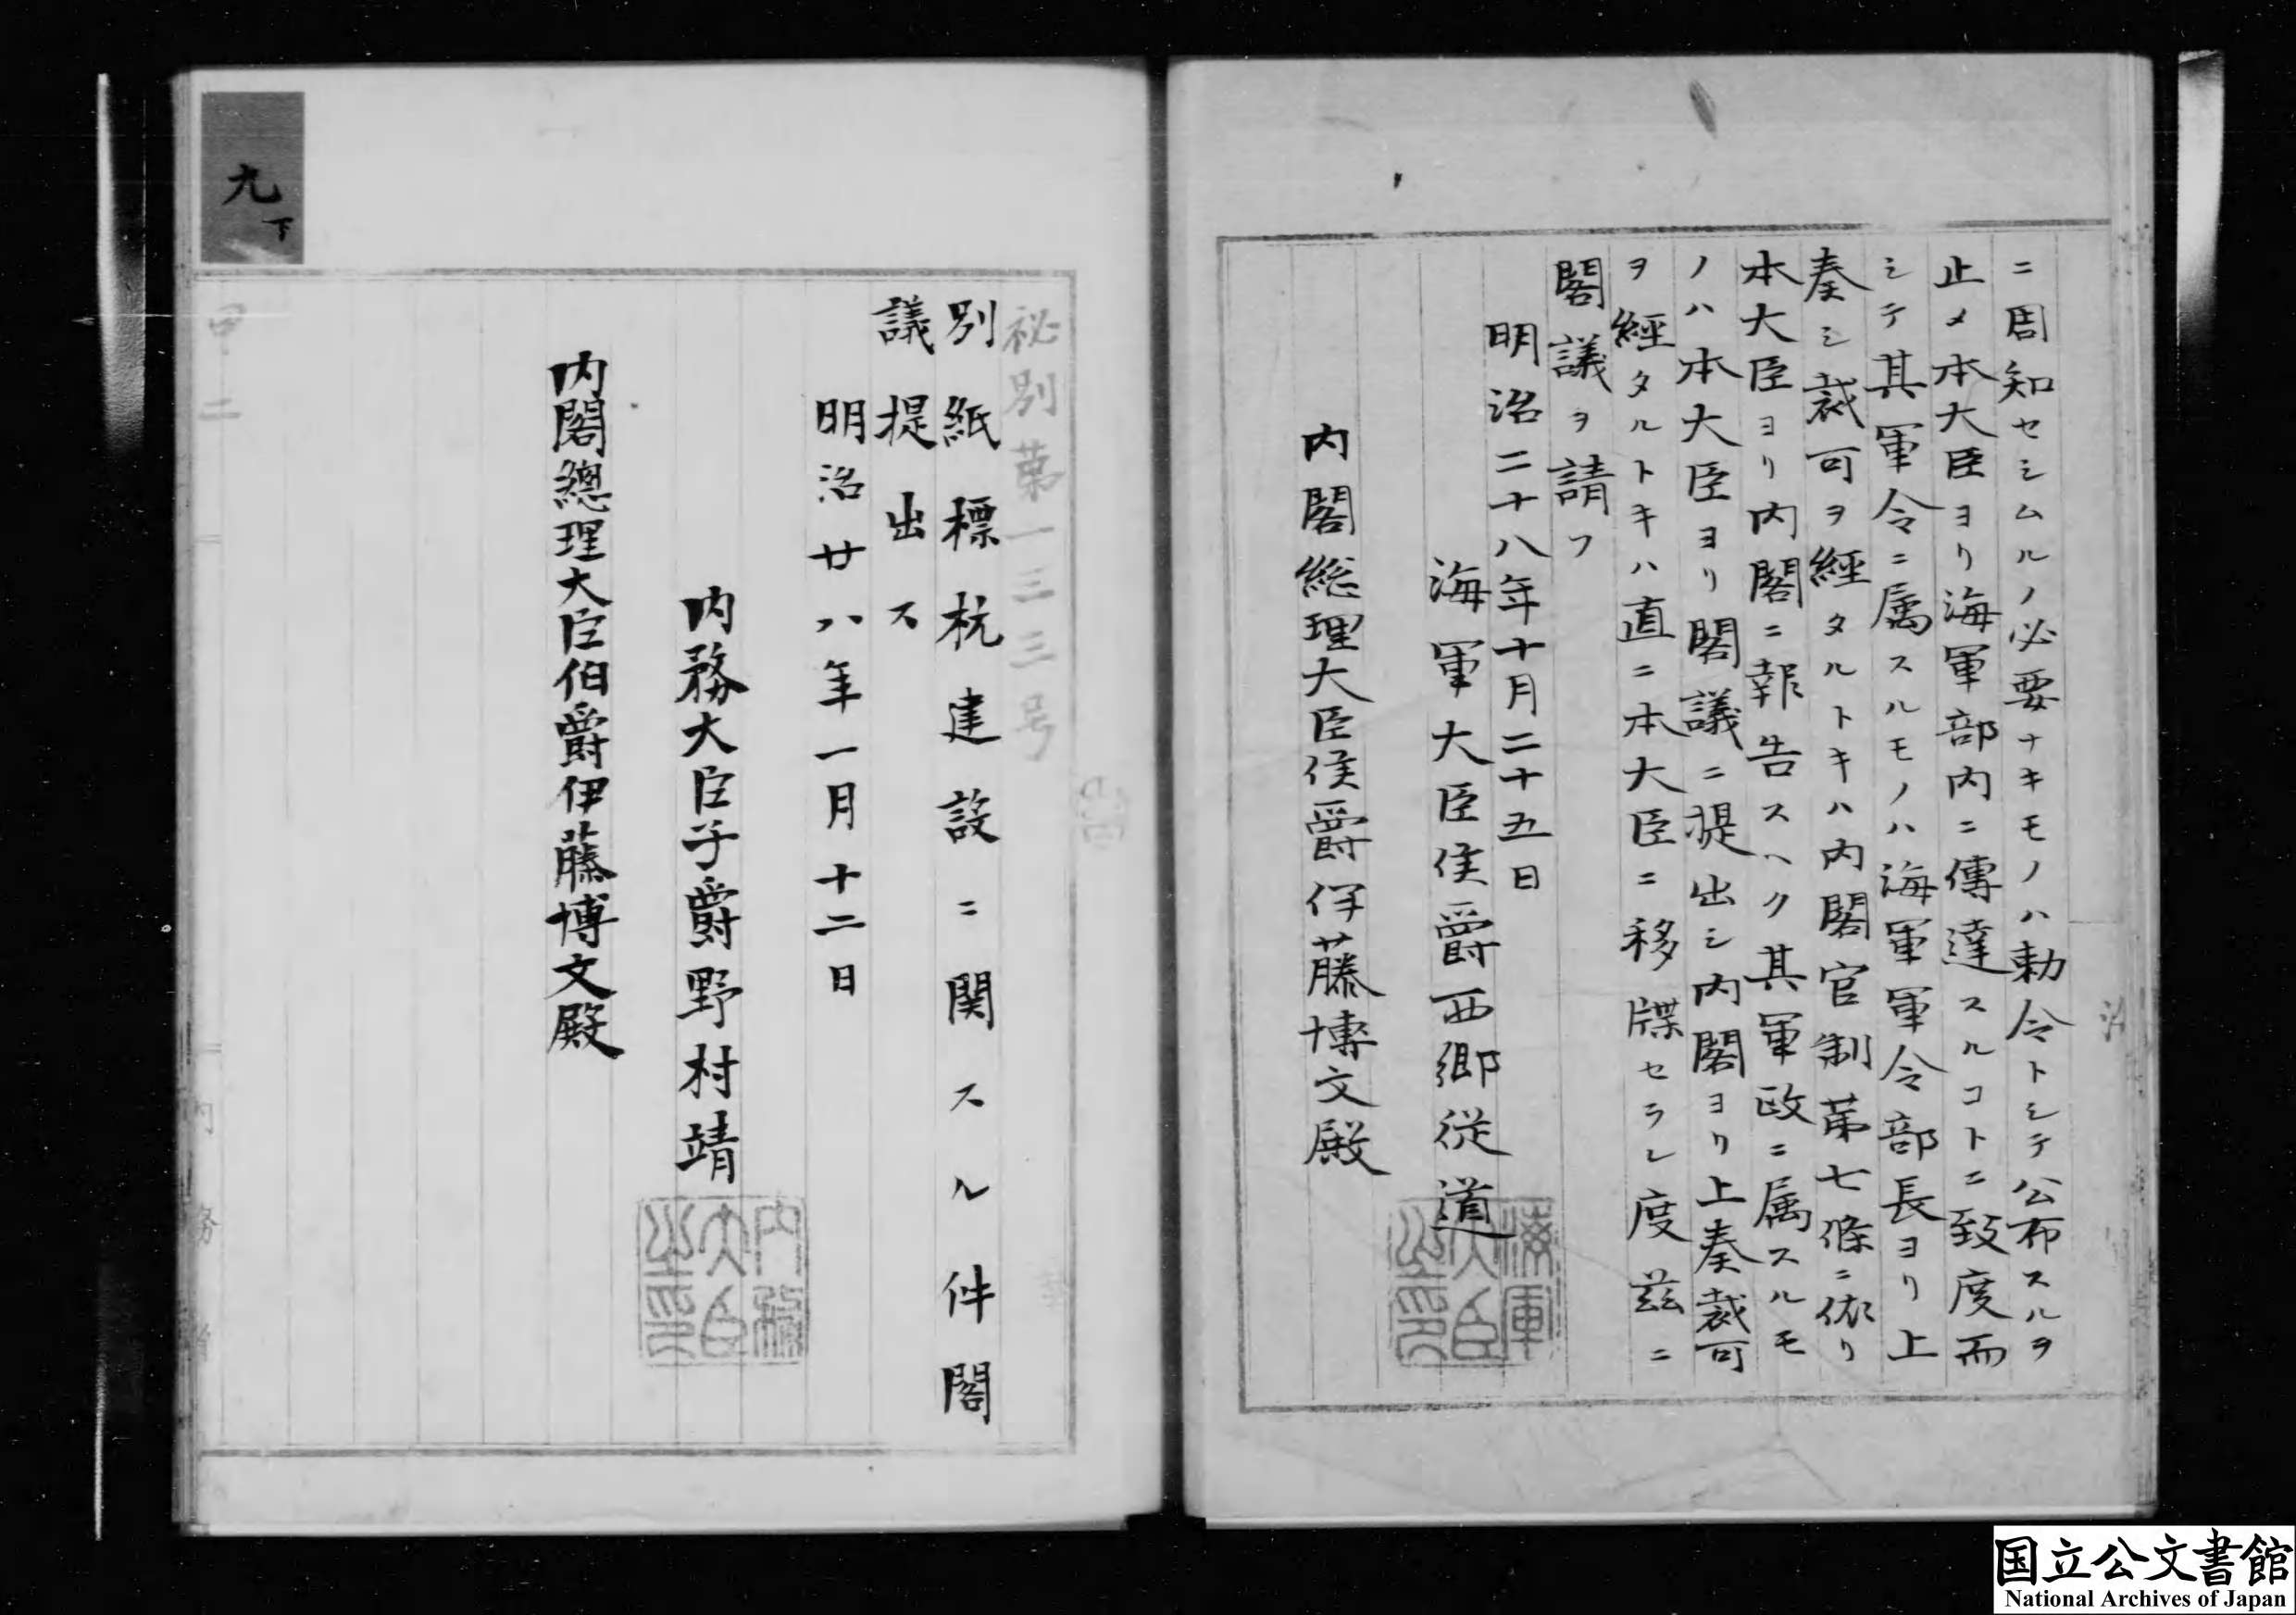 ニ周知セシムルノ必要ナキモノハ勅令トシテ公布スルヲ
止メ本大臣ヨリ海軍部内ニ傳達スルコトニ致度而
シテ其軍令ニ属スルモノハ海軍軍令部長ヨリ上
奏シ裁可ヲ經タルトキハ内閣官制第七條ニ依リ
本大臣ヨリ内閣ニ報告スヘク其軍政ニ属スルモ
ノハ本大臣ヨリ閣議ニ提出シ内閣ヨリ上奏裁可
ヲ經タルトキハ直ニ本大臣ニ移牒セラレ度茲ニ
閣議ヲ請フ
明治二十八年十月二十五日
海軍大臣侯爵西郷従道
海軍大臣之印
内閣総理大臣侯爵伊藤博文殿
秘別第一三三号
別紙標杭建設ニ関スル件閣
議提出ス
明治廿八年一月十二日
内務大臣子爵野村靖
内務大臣之印
内閣總理大臣伯爵伊藤博文殿
甲二
内務省
九下
国立公文書館
National Archives of Japan